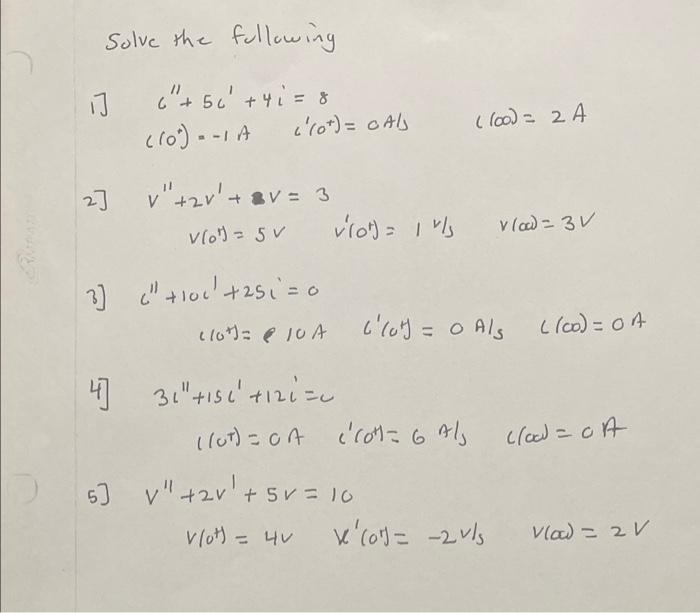 Solve the following
1] i'' + 5i' + 4i = 8
i(0⁺) = -1 A i'(0⁺) = 0 A/s i(∞) = 2 A
2] v'' + 2v' + v = 3
v(0⁺) = 5 v v'(0⁺) = 1 v/s v(∞) = 3 V
3] i'' + 10i' + 25i = 0
i(0⁺) = 10 A i'(0⁺) = 0 A/s i(∞) = 0 A
4] 3i'' + 15i' + 12i = 0
i(0⁺) = 0 A i'(0⁺) = 6 A/s i(∞) = 0 A
5] v'' + 2v' + 5v = 10
v(0⁺) = 4v v'(0⁺) = -2 v/s v(∞) = 2 V